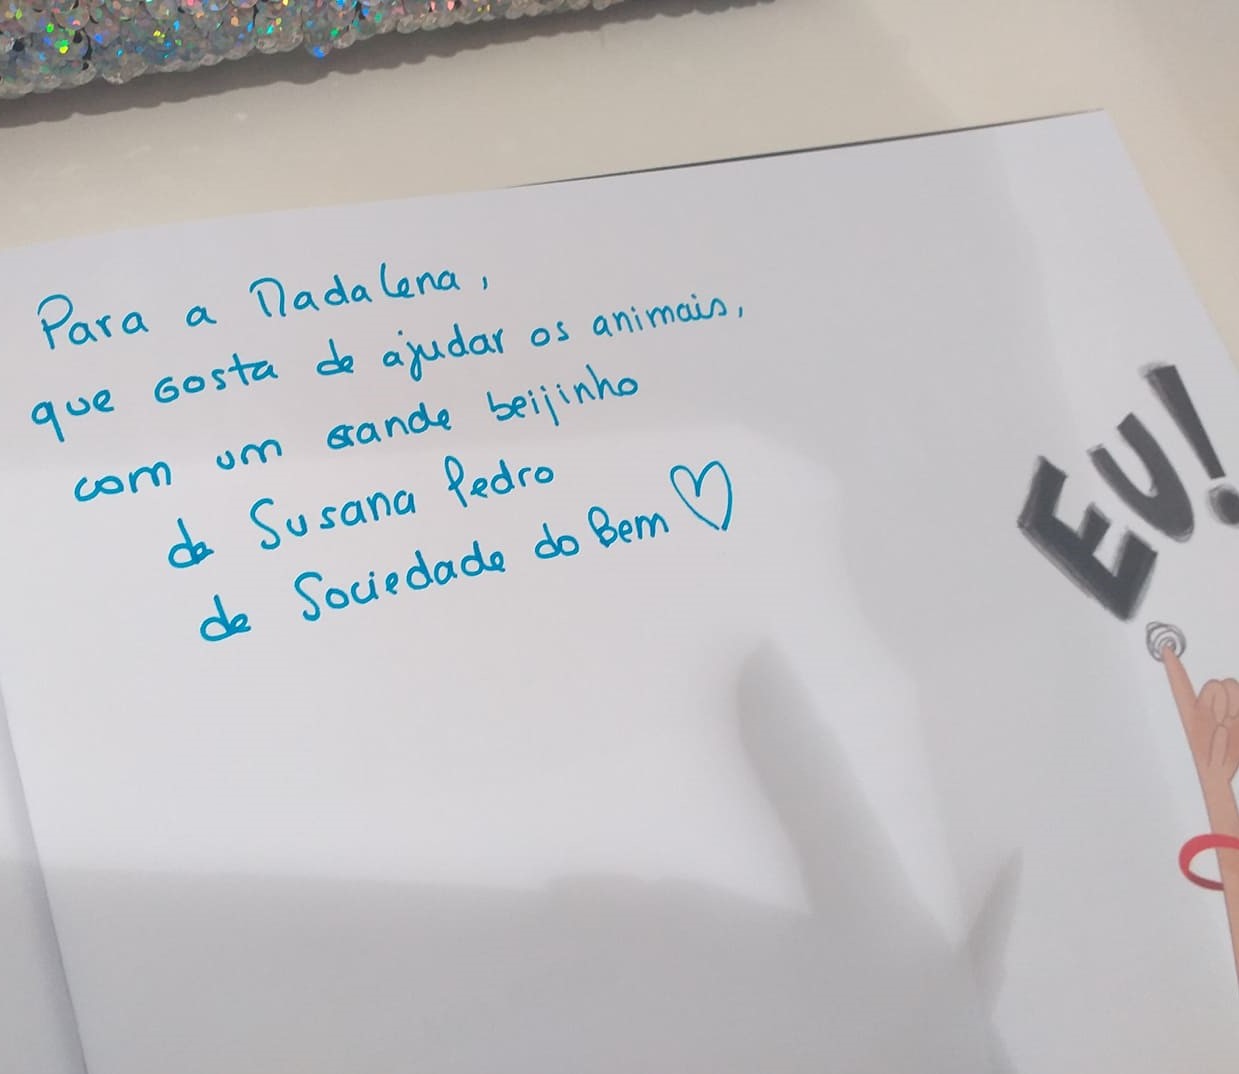 Para a Madalena,
que gosta de ajudar os animais,
com um grande beijinho
da Susana Pedro
da Sociedade do Bem ♡
EU!